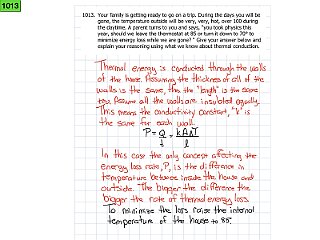 1013
1013. Your family is getting ready to go on a trip. During the days you will be
gone, the temperature outside will be very, very, hot, over 100 during
the daytime. A parent turns to you and says, "you took physics this
year, should we leave the thermostat at 85 or turn it down to 70° to
minimize energy loss while we are gone? " Give your answer below and
explain your reasoning using what we know about thermal conduction.
Thermal energy is conducted through the walls
of the house. Assuming the thickness of all of the
walls is the same, thus the "length" is the same
too. Assume all the walls are insulated equally.
This means the conductivity constant, "k" is
the same for each wall.
P = Q/t = kAΔT/l
In this case the only concept affecting the
energy loss rate, P, is the difference in
temperature between inside the house and
outside. The bigger the difference the
bigger the rate of thermal energy loss.
To minimize the loss raise the internal
temperature of the house to 85°.